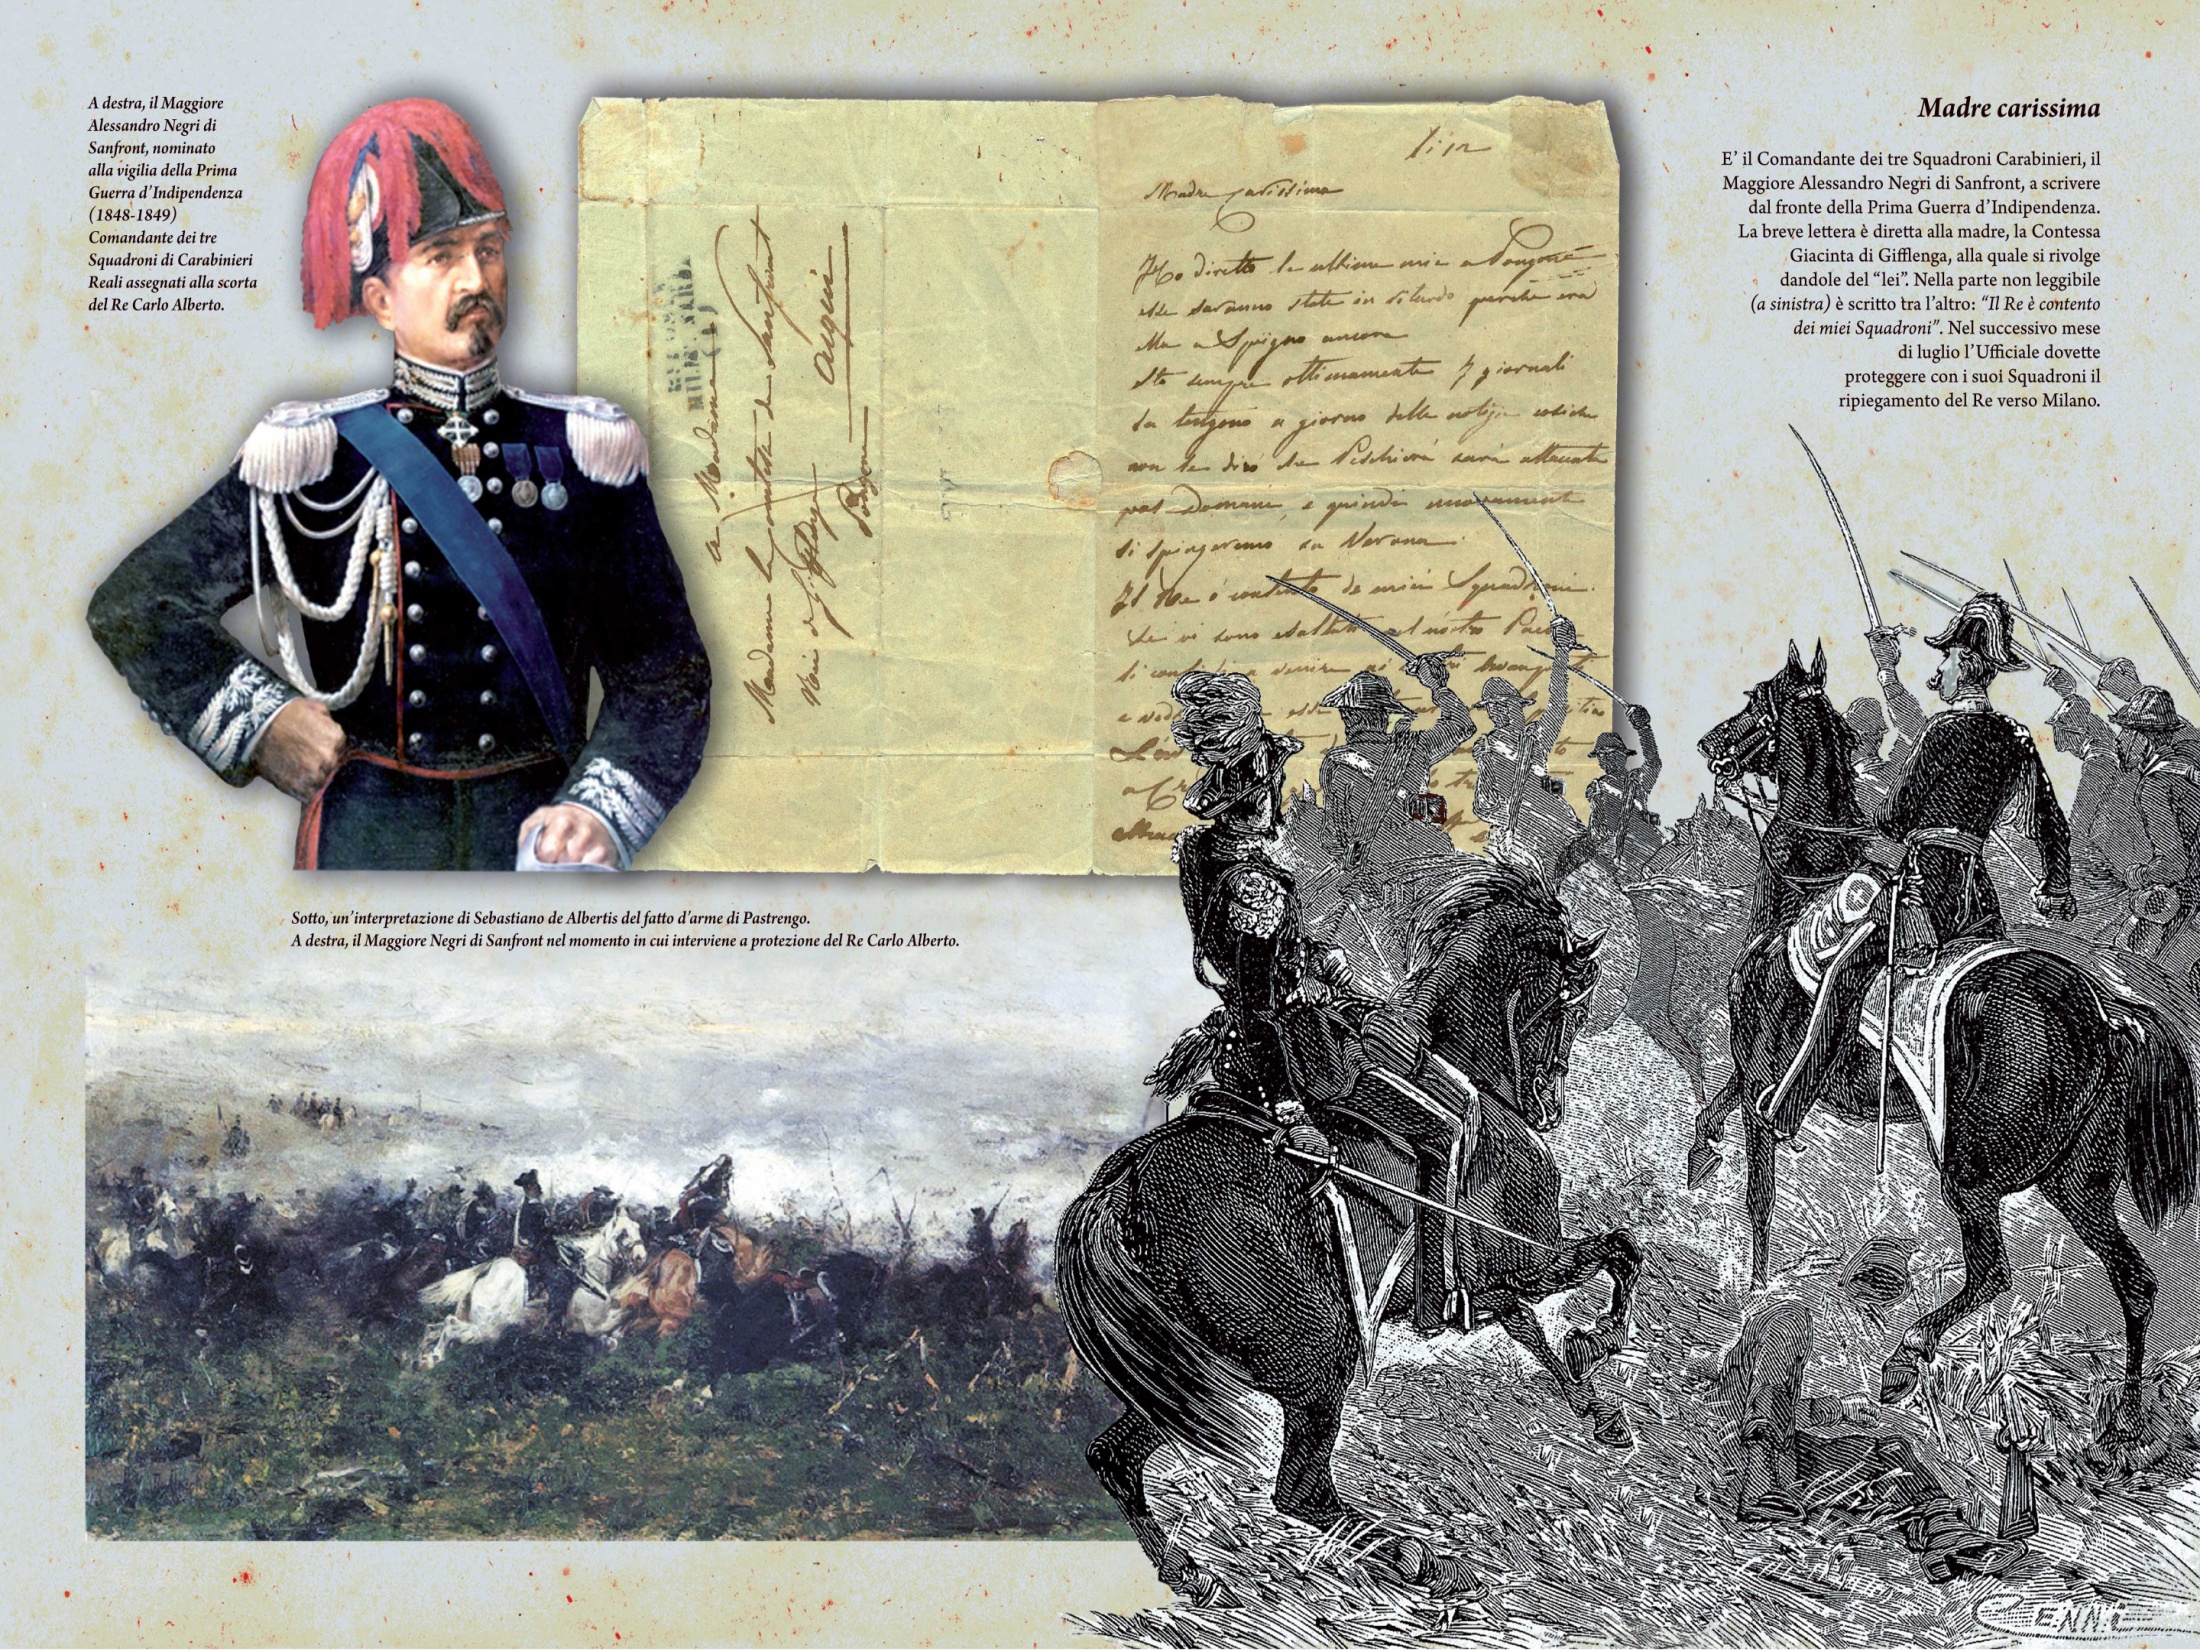 A destra, il Maggiore
Alessandro Negri di
Sanfront, nominato
alla vigilia della Prima
Guerra d'Indipendenza
(1848-1849)
Comandante dei tre
Squadroni di Carabinieri
Reali assegnati alla scorta
del Re Carlo Alberto.
a Madame
Madame la Comtesse de Sanfront
Née de Gifflenga
Acqui
Madre carissima
Ho diretto le ultime mie a
esse saranno state in ritardo perchè era
Ella a Spigno ancora
Sto sempre ottimamente I giornali
La tengono a giorno delle notizie cosichè
non Le dirò che Peschiera sarà attaccata
post domani, e quindi
si spingeremo su Verona
Il Re è contento de miei Squadroni
Madre carissima
E' il Comandante dei tre Squadroni Carabinieri, il
Maggiore Alessandro Negri di Sanfront, a scrivere
dal fronte della Prima Guerra d'Indipendenza.
La breve lettera è diretta alla madre, la Contessa
Giacinta di Gifflenga, alla quale si rivolge
dandole del “lei”. Nella parte non leggibile
(a sinistra) è scritto tra l'altro: “Il Re è contento
dei miei Squadroni”. Nel successivo mese
di luglio l'Ufficiale dovette
proteggere con i suoi Squadroni il
ripiegamento del Re verso Milano.
Sotto, un'interpretazione di Sebastiano de Albertis del fatto d'arme di Pastrengo.
A destra, il Maggiore Negri di Sanfront nel momento in cui interviene a protezione del Re Carlo Alberto.
CENNI